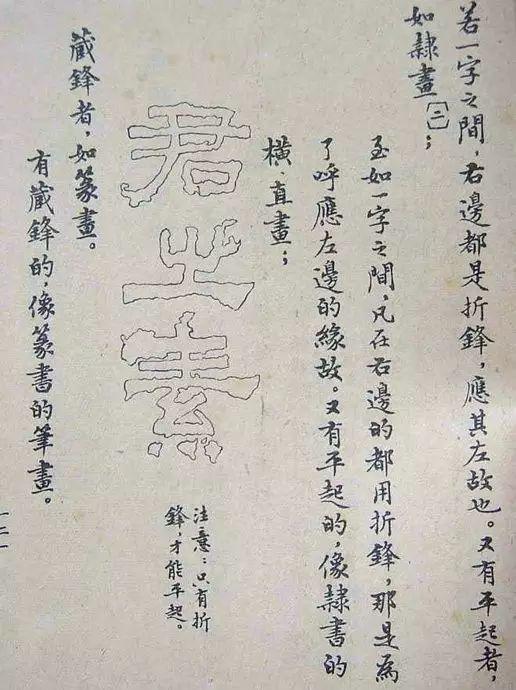 若一字之間，右邊都是折鋒，應其左故也。又有平起者，
如隸畫〔二〕；
至如一字之間，凡在右邊的都用折鋒，那是為
了呼應左邊的緣故。又有平起的，像隸書的
橫、直畫；
君之素
注意：只有折
鋒，才能平起。
藏鋒者，如篆畫。
有藏鋒的，像篆書的筆畫。